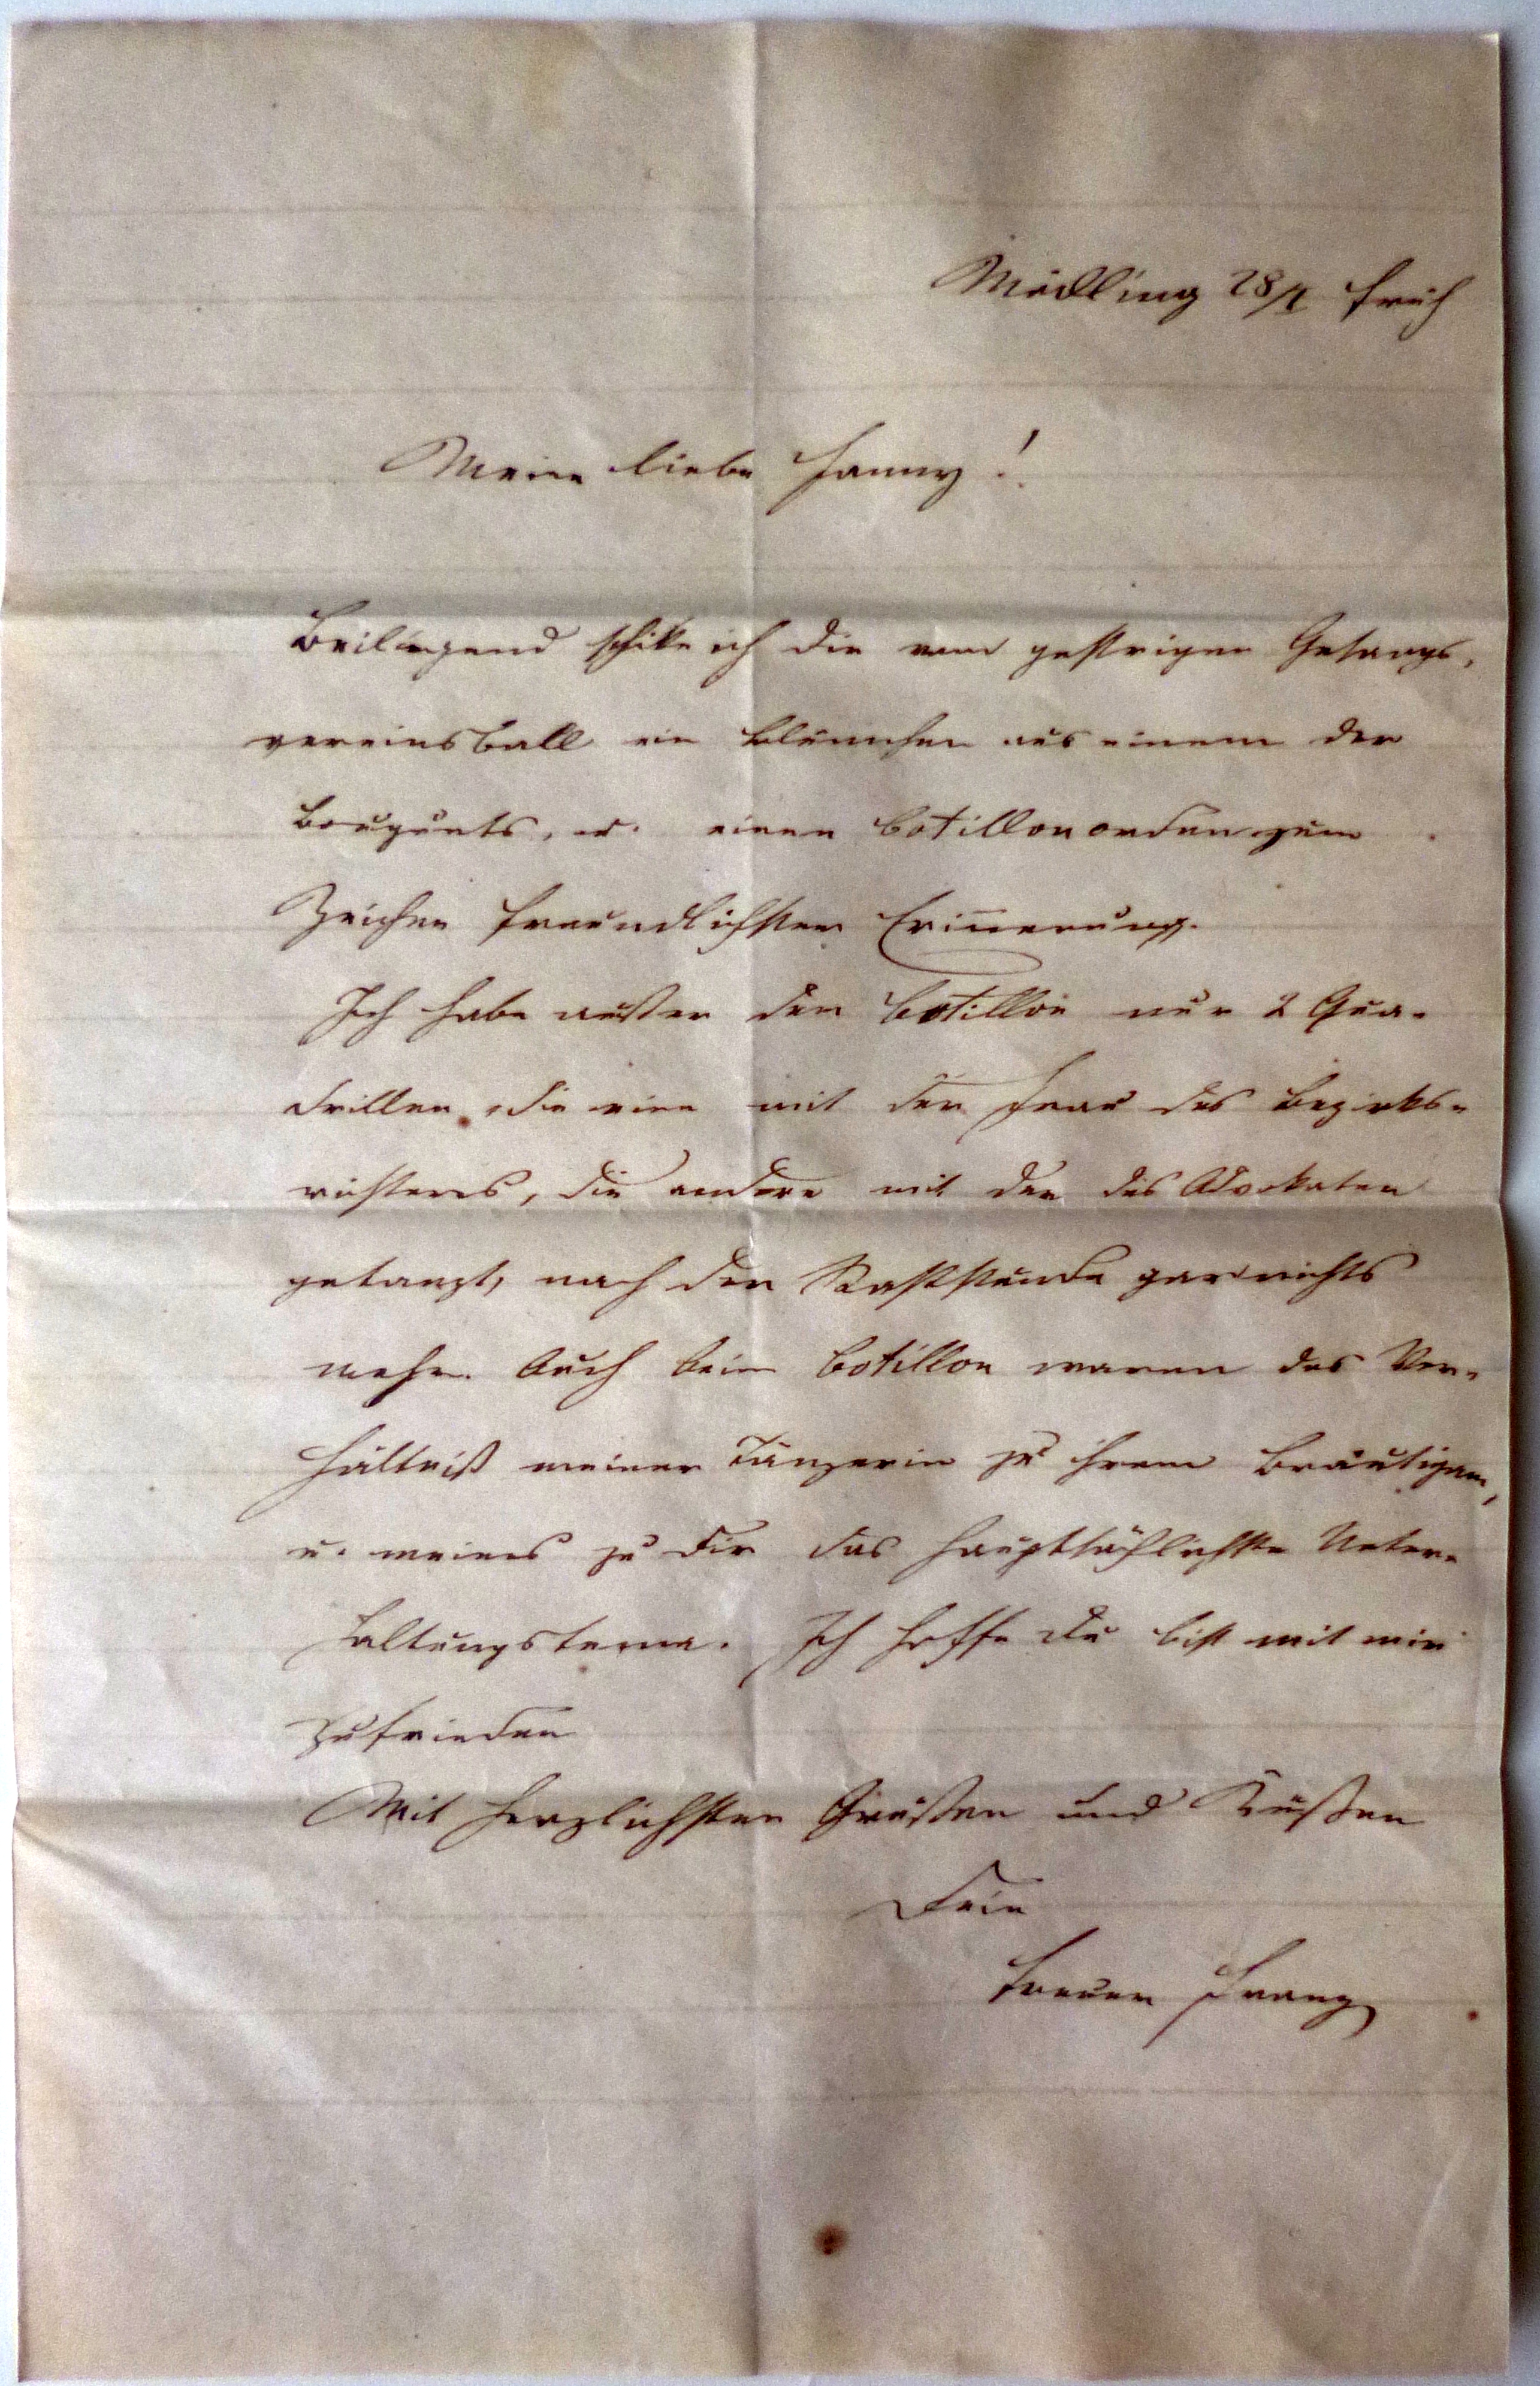 Mödling 28/1 früh
Meine liebe Fanny!
Beiliegend schike ich dir vom gestrigen Gesangs-
vereinsball ein Blümchen aus einem der
Bouquets, u. einen Cotillonorden zum
Zeichen freundlichster Erinnerung.
Ich habe außer den Cotillon nur 2 Qua-
drillen, die eine mit der Frau des Bezirks-
richters, die andere mit der des Advokaten
getanzt, nach der Raststunde gar nichts
mehr. Auch beim Cotillon waren das Ver-
hältniß meiner Tänzerin zu ihrem Bräutigam,
u. meines zu dir das hauptsächlichste Unter-
haltungstema. Ich hoffe du bist mit mir
zufrieden
Mit herzlichsten Grüßen und Küßen
Dein
treuer Franz